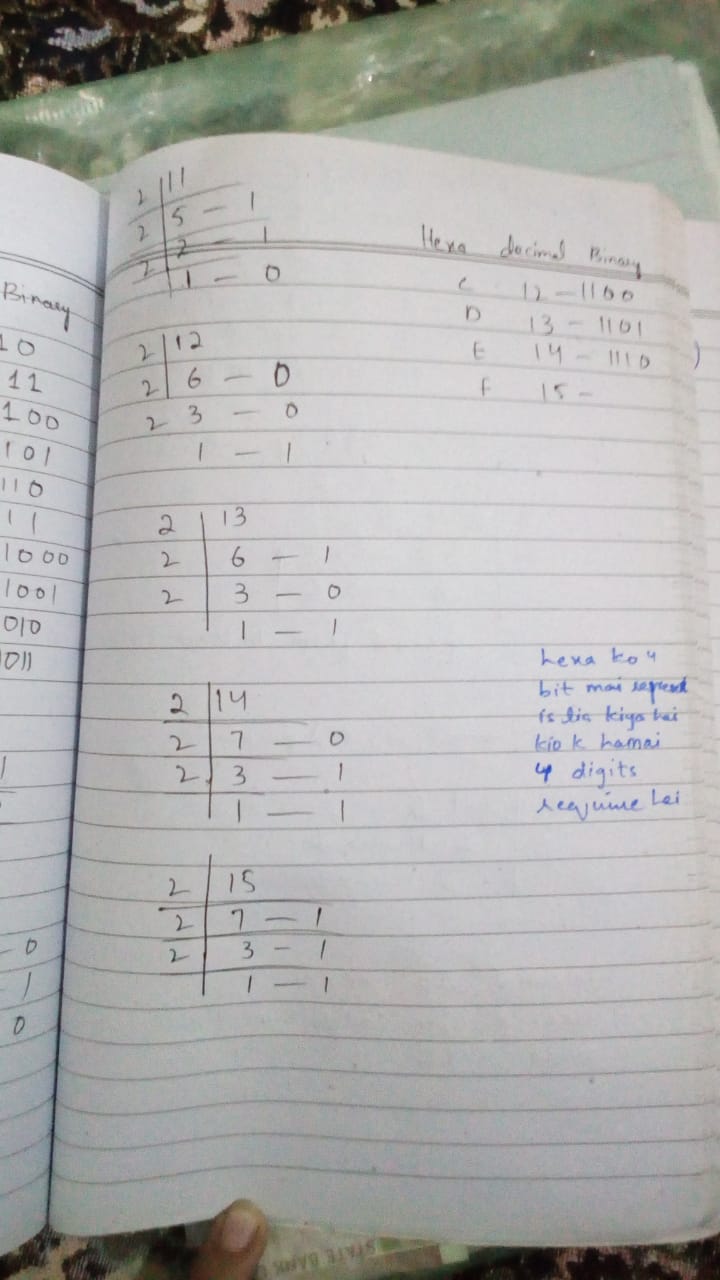 Binary
10
11
100
101
110
11
1000
1001
010
1011
1
0
1
0
2 | 11
2 | 5 — 1
2 | 2 — 1
2 | 1 — 0
2 | 12
2 | 6 — 0
2 3 — 0
1 — 1
2 | 13
2 | 6 — 1
2 | 3 — 0
| 1 — 1
2 | 14
2 | 7 — 0
2 | 3 — 1
| 1 — 1
2 | 15
2 | 7 — 1
2 | 3 — 1
| 1 — 1
Hexa decimal Binary
C 12 — 1100
D 13 — 1101
E 14 — 1110
F 15 —
hexa ko 4
bit mai
is lia kiya hai
kio k hamai
4 digits
hai
STATE BANK